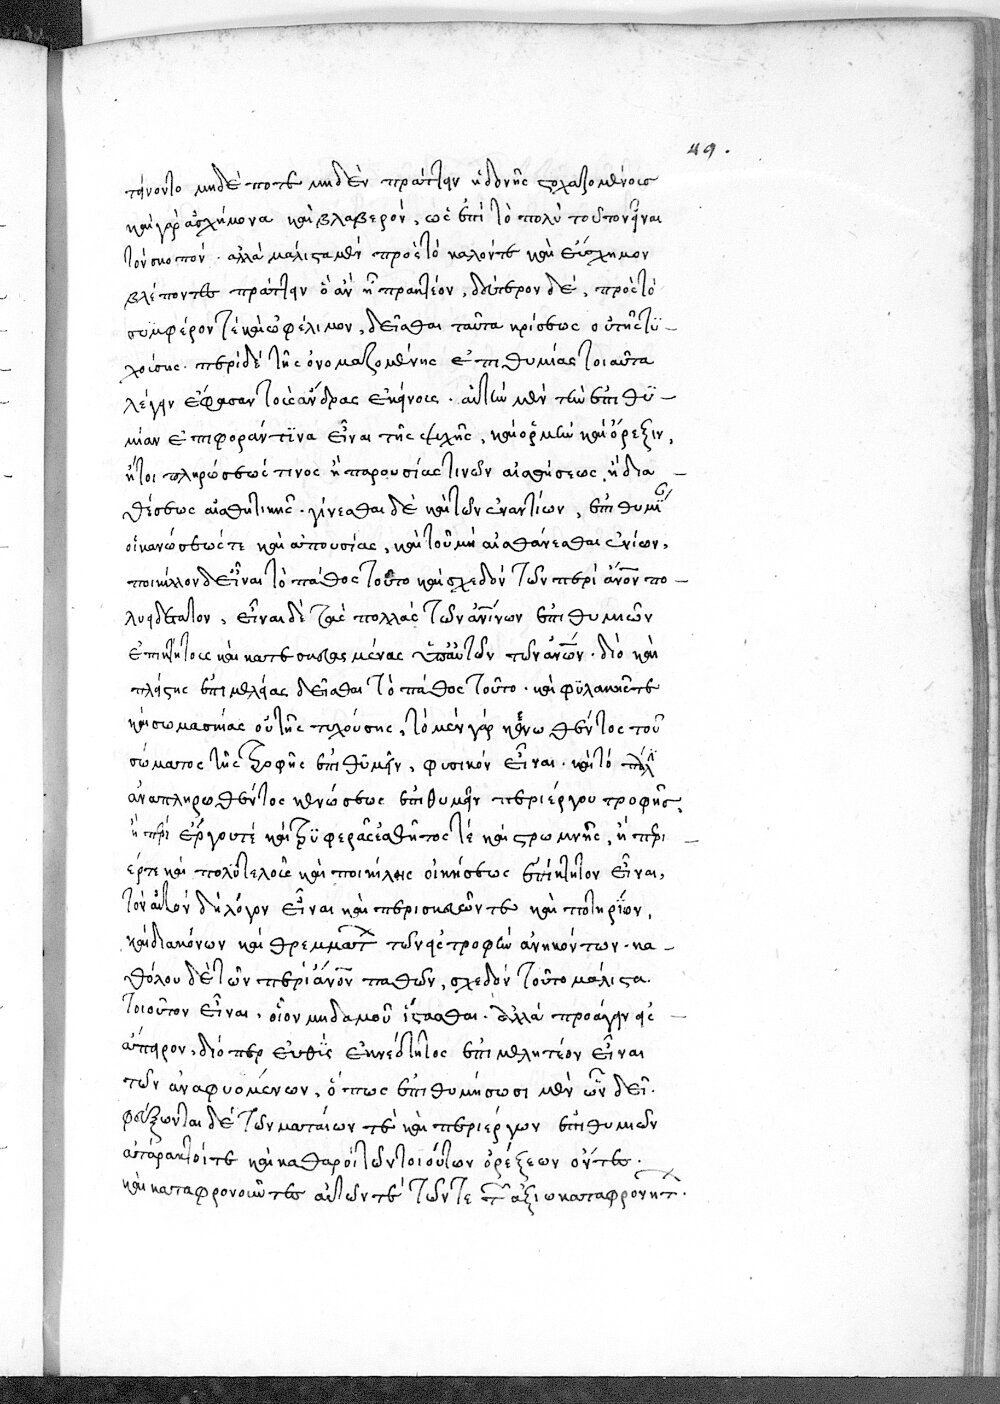 49.
τείνοντο μηδέποτε μηδὲν πράττειν ἡδονῆς στοχαζομένοις
καὶ γὰρ ἀσχήμονα καὶ βλαβερόν, ὡς ἐπὶ τὸ πολὺ τοῦτον εἶναι
τὸν σκοπόν. ἀλλὰ μάλιστα μὲν πρὸς τὸ καλόν τε καὶ εὔσχημον
βλέποντες πράττειν ὃ ἂν ἦ πρακτέον, δεύτερον δέ, πρὸς τὸ
συμφέρον τὲ καὶ ὠφέλιμον, δεῖσθαι ταῦτα κρίσεως οὐ τῆς τυ-
χούσης. περὶ δὲ τῆς ὀνομαζομένης ἐπιθυμίας τοιαῦτα
λέγειν ἔφασαν τοὺς ἄνδρας ἐκείνους. αὐτὴν μὲν τὴν ἐπιθυ-
μίαν ἐπιφορὰν τινα εἶναι τῆς ψυχῆς, καὶ ὁρμὴν καὶ ὄρεξιν,
ἤτοι πληρώσεώς τινος ἢ παρουσίας τινῶν αἰσθήσεως, ἢ δια-
θέσεως αἰσθητικῆς. γίνεσθαι δὲ καὶ τῶν ἐναντίων, ἐπιθυμί
οἷ κενώσεώς τε καὶ ἀπουσίας, καὶ τοῦ μὴ αἰσθάνεσθαι ἐνίων,
ποικίλον δὲ εἶναι τὸ πάθος τοῦτο καὶ σχεδὸν τῶν περὶ ἄνον πο-
λυειδέστατον, εἶναι δὲ τὰς πολλὰς τῶν ἀνίνων ἐπιθυμιῶν
ἐπικτήτους καὶ κατεσκευασμένας ὑπ' αὐτῶν τῶν ἀνων. διὸ καὶ
πλείστης ἐπιμελείας δεῖσθαι τὸ πάθος τοῦτο. καὶ φυλακῆς τε
καὶ σωμασκίας οὐ τῆς τυχούσης, τὸ μὲν γὰρ κενωθέντος τοῦ
σώματος τῆς τροφῆς ἐπιθυμεῖν, φυσικὸν εἶναι. καὶ τὸ πάλι
ἀναπληρωθέντος κενώσεως ἐπιθυμεῖν περιέργου τροφῆς,
ἢ περὶ ἔργου τέ καὶ τρυφερᾶς ἐσθῆτος τέ καὶ στρωμνῆς, ἢ περι
έργου καὶ πολυτελοῦς καὶ ποικίλης οἰκήσεως ἐπίκτητον εἶναι,
τὸν αὐτὸν δὴ λόγον εἶναι καὶ περὶ σκευῶν τε καὶ ποτηρίων,
καὶ διακόνων καὶ θρεμμάτ τῶν εἰς τροφὴν ἀνηκόντων. κα-
θόλου δὲ τῶν περὶ ἄνον παθῶν, σχεδὸν τοῦτο μάλιστα.
τοιοῦτον εἶναι, οἷον μηδαμοῦ ἵστασθαι. ἀλλὰ προάγειν εἰς -
ἄπειρον, διόπερ εὐθὺς ἐκ νεότητος ἐπιμελητέον εἶναι
τῶν ἀναφυομένων, ὅπως ἐπιθυμήσωσι μὲν ὧν δεῖ.
φεύξωνται δὲ τῶν ματαίων τε καὶ περιέργων ἐπιθυμιῶν
ἀτάρακτοί τε καὶ καθαροὶ τῶν τοιούτων ὀρέξεων ὄντες.
καὶ καταφρονοῦντες αὐτῶν τε τῶν τε ἀξιοκαταφρονήτ.